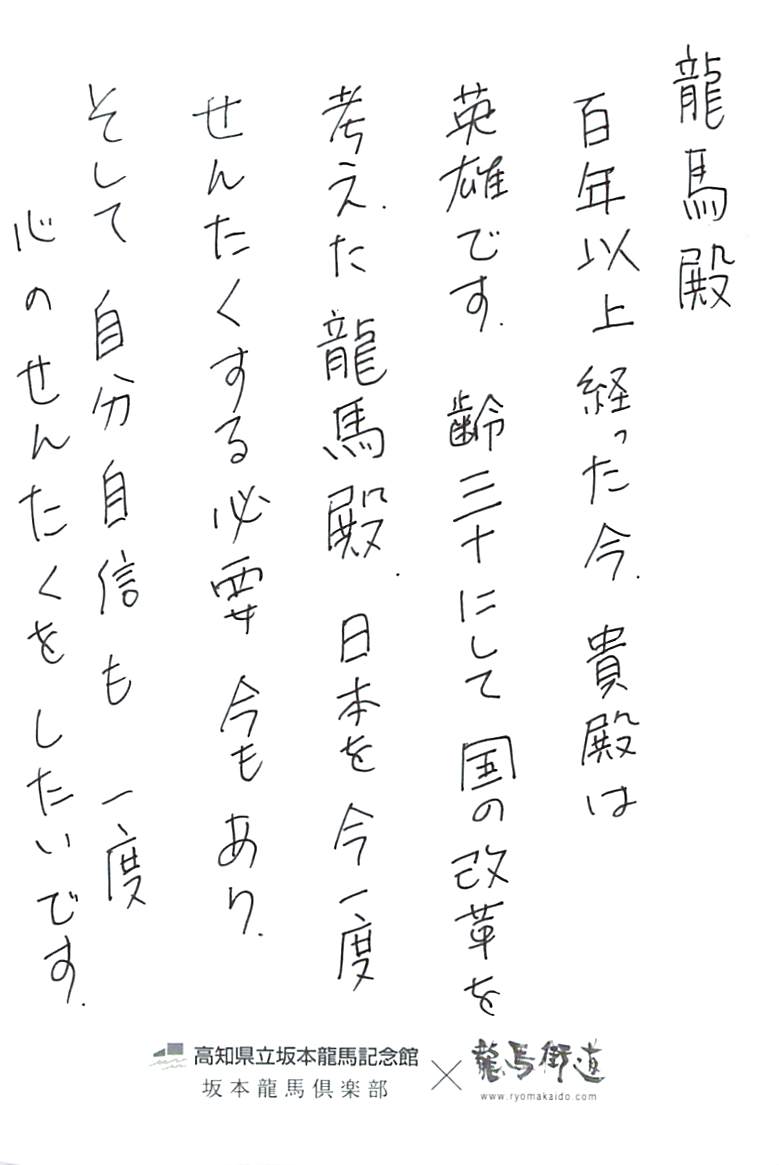 龍馬殿
百年以上経った今.貴殿は
英雄です.齢三十にして国の改革を
考えた龍馬殿.日本を今一度
せんたくする必要今もあり.
そして自分自信も一度
心のせんたくをしたいです.
高知県立坂本龍馬記念館
坂本龍馬倶楽部
×
龍馬街道
www.ryomakaido.com